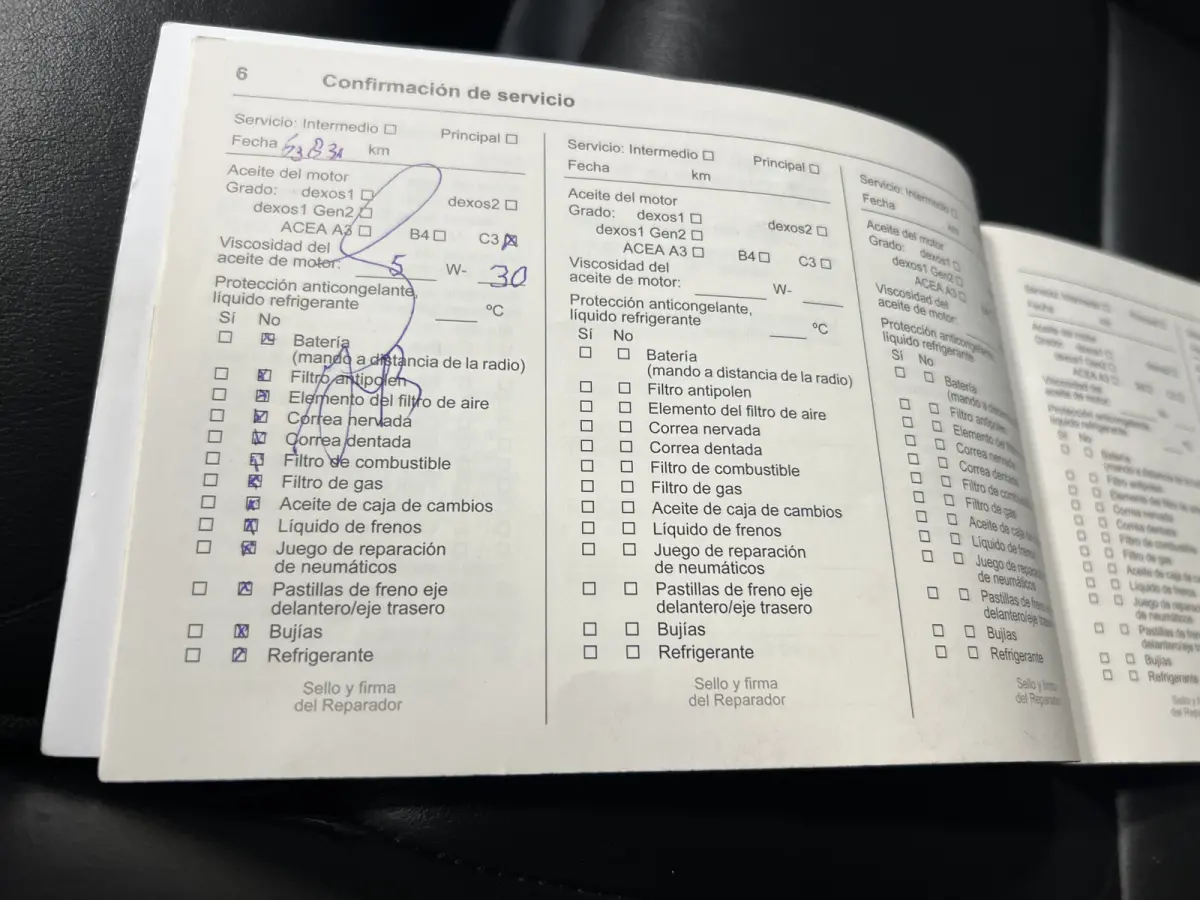 6
Confirmación de servicio
Servicio: Intermedio Principal
Fecha km
Aceite del motor
Grado: dexos1 dexos2
dexos1 Gen2
ACEA A3 B4 C3
Viscosidad del
aceite de motor: 5 W- 30
Protección anticongelante,
líquido refrigerante ºC
Sí No
Batería
(mando a distancia de la radio)
Filtro antipolen
Elemento del filtro de aire
Correa nervada
Correa dentada
Filtro de combustible
Filtro de gas
Aceite de caja de cambios
Líquido de frenos
Juego de reparación
de neumáticos
Pastillas de freno eje
delantero/eje trasero
Bujías
Refrigerante
Sello y firma
del Reparador
Servicio: Intermedio Principal
Fecha km
Aceite del motor
Grado: dexos1 dexos2
dexos1 Gen2
ACEA A3 B4 C3
Viscosidad del
aceite de motor: W-
Protección anticongelante,
líquido refrigerante ºC
Sí No
Batería
(mando a distancia de la radio)
Filtro antipolen
Elemento del filtro de aire
Correa nervada
Correa dentada
Filtro de combustible
Filtro de gas
Aceite de caja de cambios
Líquido de frenos
Juego de reparación
de neumáticos
Pastillas de freno eje
delantero/eje trasero
Bujías
Refrigerante
Sello y firma
del Reparador
Servicio: Intermedio
Fecha
km
Aceite del motor
Grado: dexos1
dexos1 Gen2
ACEA A3
Viscosidad del
aceite de motor:
Protección anticongelante,
líquido refrigerante
Sí No
Batería
(mando a
Filtro
Elemento
Correa nervada
Correa dentada
Filtro de
Filtro de gas
Aceite de caja de
Líquido de frenos
Juego de
de neumáticos
Pastillas de
delantero/eje
Bujías
Refrigerante
Sello y
del
Sí No
Batería
Correa nervada
Correa dentada
Filtro de gas
Líquido de frenos
de neumáticos
Bujías
Refrigerante